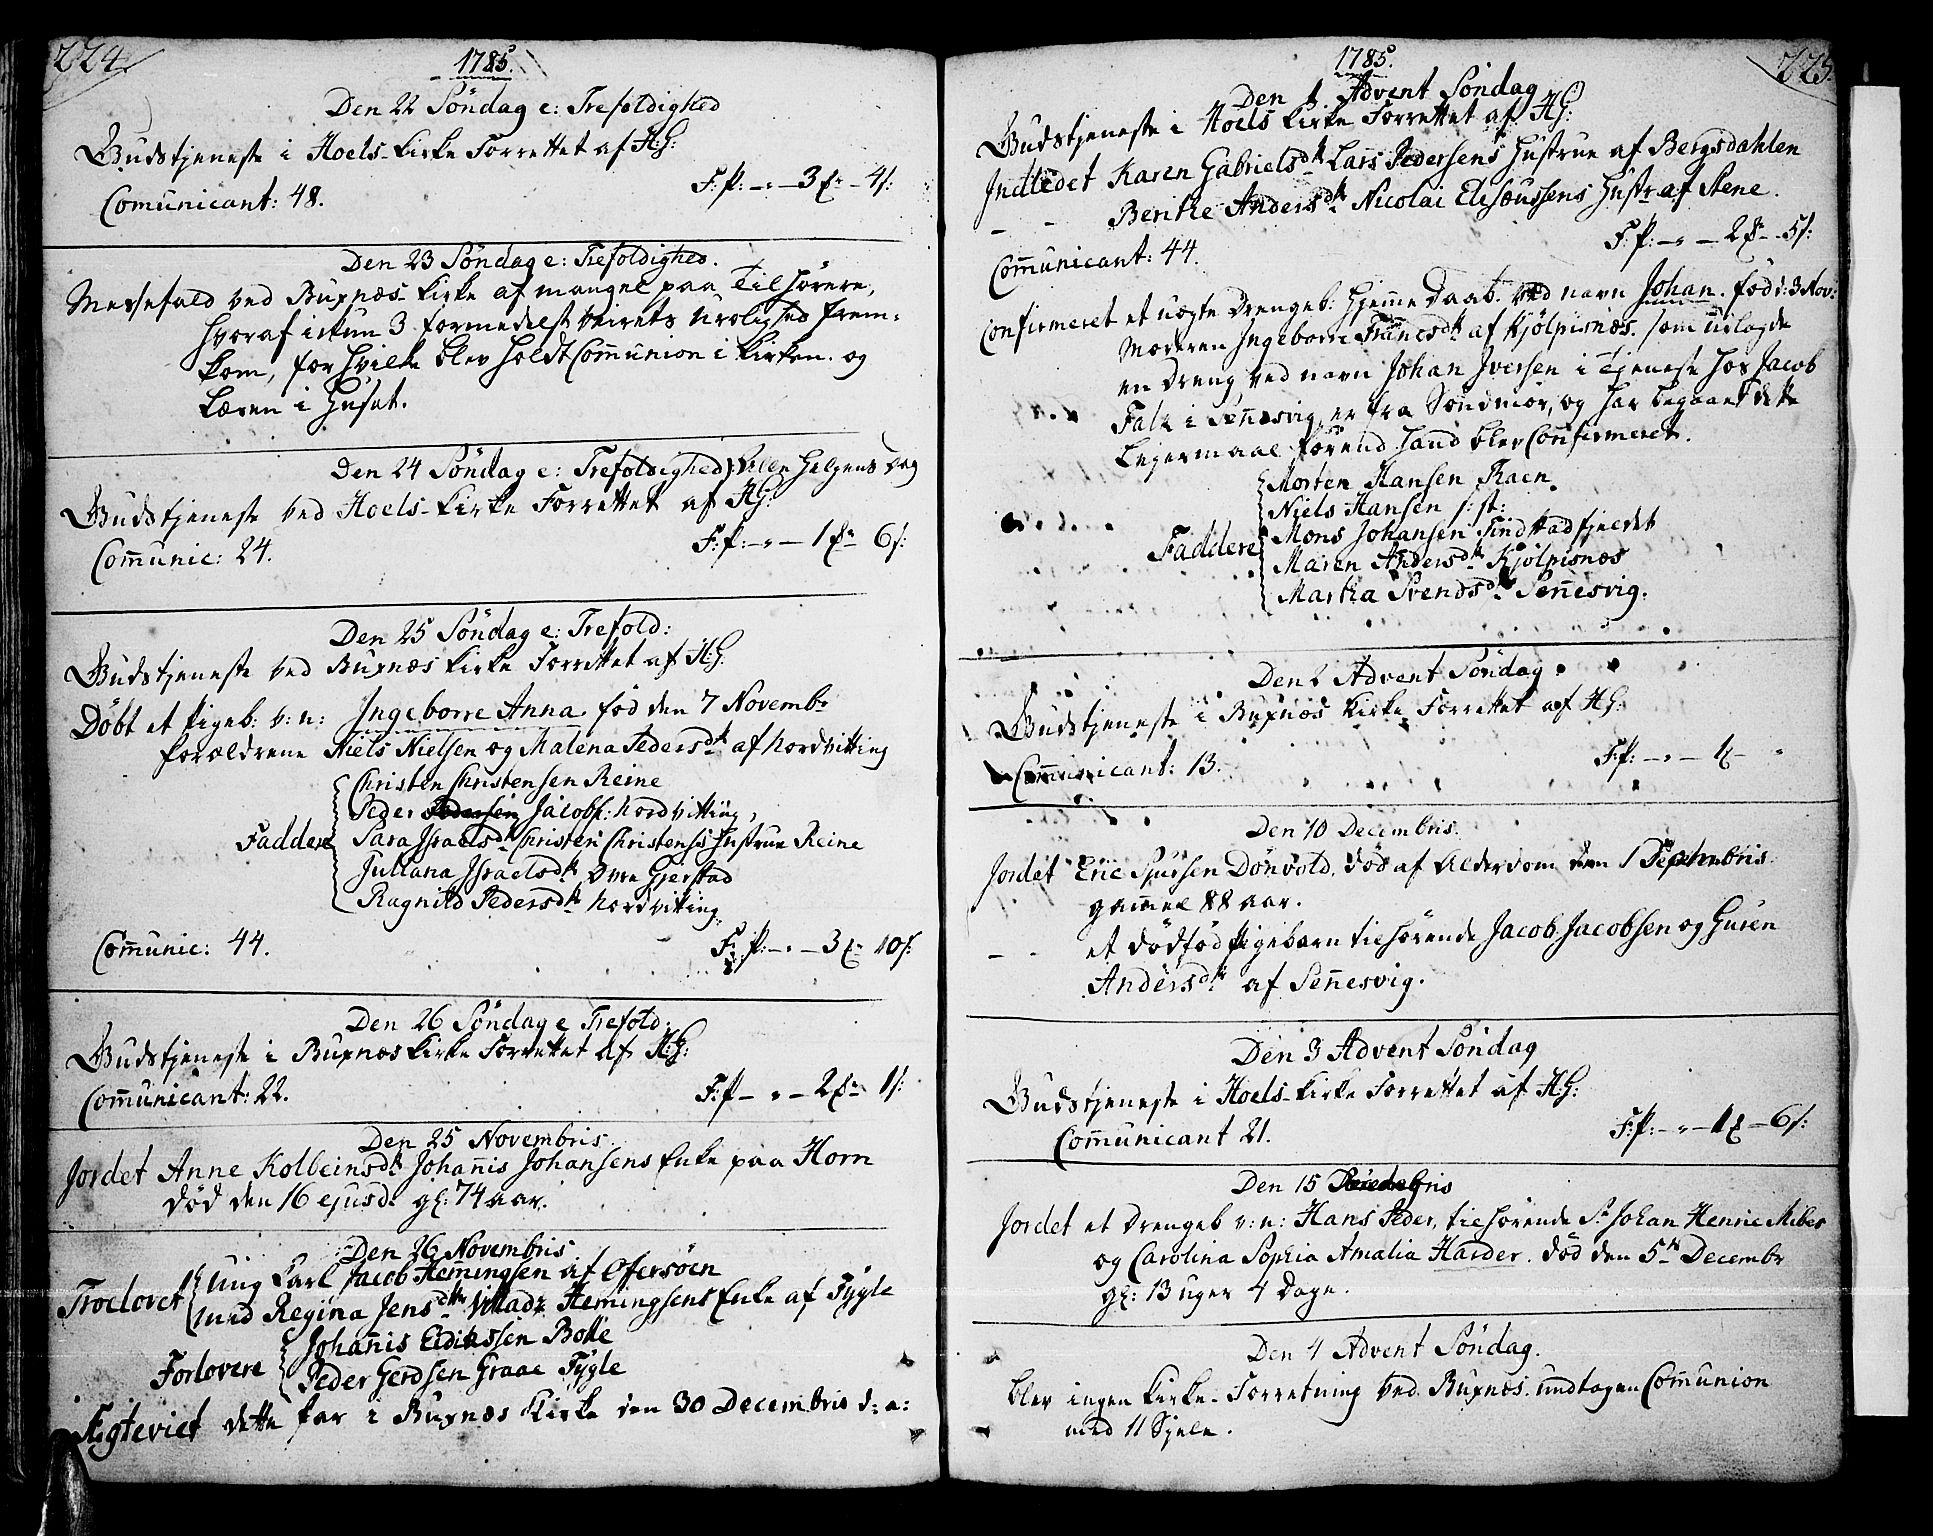 224
1785.
Den 22 Söndag e: Trefoldighed
Gudstjeneste i Hoels-Kirke Forrettet af H:G:
F:P: - " - 3 - 4 s:
Comunicant: 48.
Den 23 Söndag e: Trefoldighed.
Messefald ved Buxnæs Kirke af mangel paa Tilhörere,
hvoraf ickun 3 formedelst veirets Urolighed frem-
kom, for hvilke blev holdt Communion i Kirken. og
læsen i Huset.
Den 24 Söndag e: Trefoldighed Alle Helgens dag
Gudstjeneste ved Hoels-Kirke Forrettet af H:G:
F:P: - " - 1 6 s:
Communic: 24.
Den 25 Söndag e: Trefold:
Gudstjeneste ved Buxnæs Kirke Forrettet af H:G:
Döbt et Pigeb: v: n: Ingeborre Anna. föd den 7 Novembr
forældrene Niels Nielsen og Malena Pedersdt af Nordvitting
Christen Christensen Reine
Peder Jacobs: Nordvitting,
Faddere Sara Israelsdt Christen Christens: Hustrue Reine
Juliana Israelsdt Övre Gjerstad
Ragnild Pedersdt Nordvitting
Communic: 44.
F:P: - " - 3 10 s:
Den 26 Söndag e Trefold:
Gudstjeneste i Buxnæs Kirke Forrettet af H:G:
Communicant: 22.
F:P - " - 2 1 s:
Den 25 Novembris.
Jordet Anne Kolbeinsdt Johannis Johansens Enke paa Horn
död den 16 ejusd: gl: 74 aar.
Den 26 Novembris
Troelovet ung Karl Jacob Hemmingsen af Offersöen
med Regina Jensdtr Hemingsens Enke af Fygle
Johannis Bolle
Forlovere Peder Gerdsen Graae Fygle
Ægteviet dette par i Buxnæs Kirke den 30 Decembris d: a:
225
1785.
Den 1. Advent Söndag
Gudstjeneste i Hoels Kirke Forrettet af H:G:
Indledet Karen Gabrielsdt Lars Pedersens Hustrue af Bergsdahlen
- - Berithe Andersdt Nicolai Elisæussens Hustr af Stene.
F:P: - " - 2 - 5 s:
Communicant: 44.
Confirmeret et uægte Drengeb: hjemme Daab. ved navn Johan. föd d: 3 Nov:
Moderen Ingeborre Francsdt af Kjölpisnæs. som udlagde
en Dreng ved navn Johan Iversen i Tjeneste hos Jacob
Falk i Sennesvig, er fra Söndmör, og har begaaet dette
Lejermaal förend hand blev Confirmeret.
Morten Hansen Raen.
Niels Hansen s: st:
Faddere Mons Johansen Tindstadfjeldet
Maren Andersdt Kjölpisnæs
Martha Svendsdt Sennesvig.
Den 2 Advent Söndag
Gudstjeneste i Buxnæs Kirke Forrettet af H:G:
F:P: - " - 1 - "
Communicant: 13.
Den 10 Decembris.
Jordet Eric Sjursen Dönvold, död af Alderdom den 1 Septembris
gammel 88 aar.
- - et dödföd Pigebarn tilhörende Jacob Jacobsen og Guren
Andersdt af Sennesvig.
Den 3 Advent Söndag
Gudstjeneste i Hoels-Kirke Forrettet af H:G:
F:P: - " - 1 - 6 s:
Communicant 21.
Den 15 Decembris
Jordet et Drengeb v: n: Hans Peder, tilhörende Sr Johan Henric Ribes
og Carolina Sophia Amalia Harder. död den 5te Decembr
gl: 13 uger 4 Dage.
Den 4 Advent Söndag.
blev ingen Kirke-Forretning ved Buxnæs. undtagen Communion
med 11 Sjele.